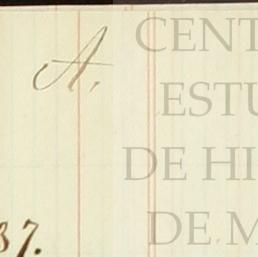 A.
CENT
ESTU
DE HI
DE M
37.